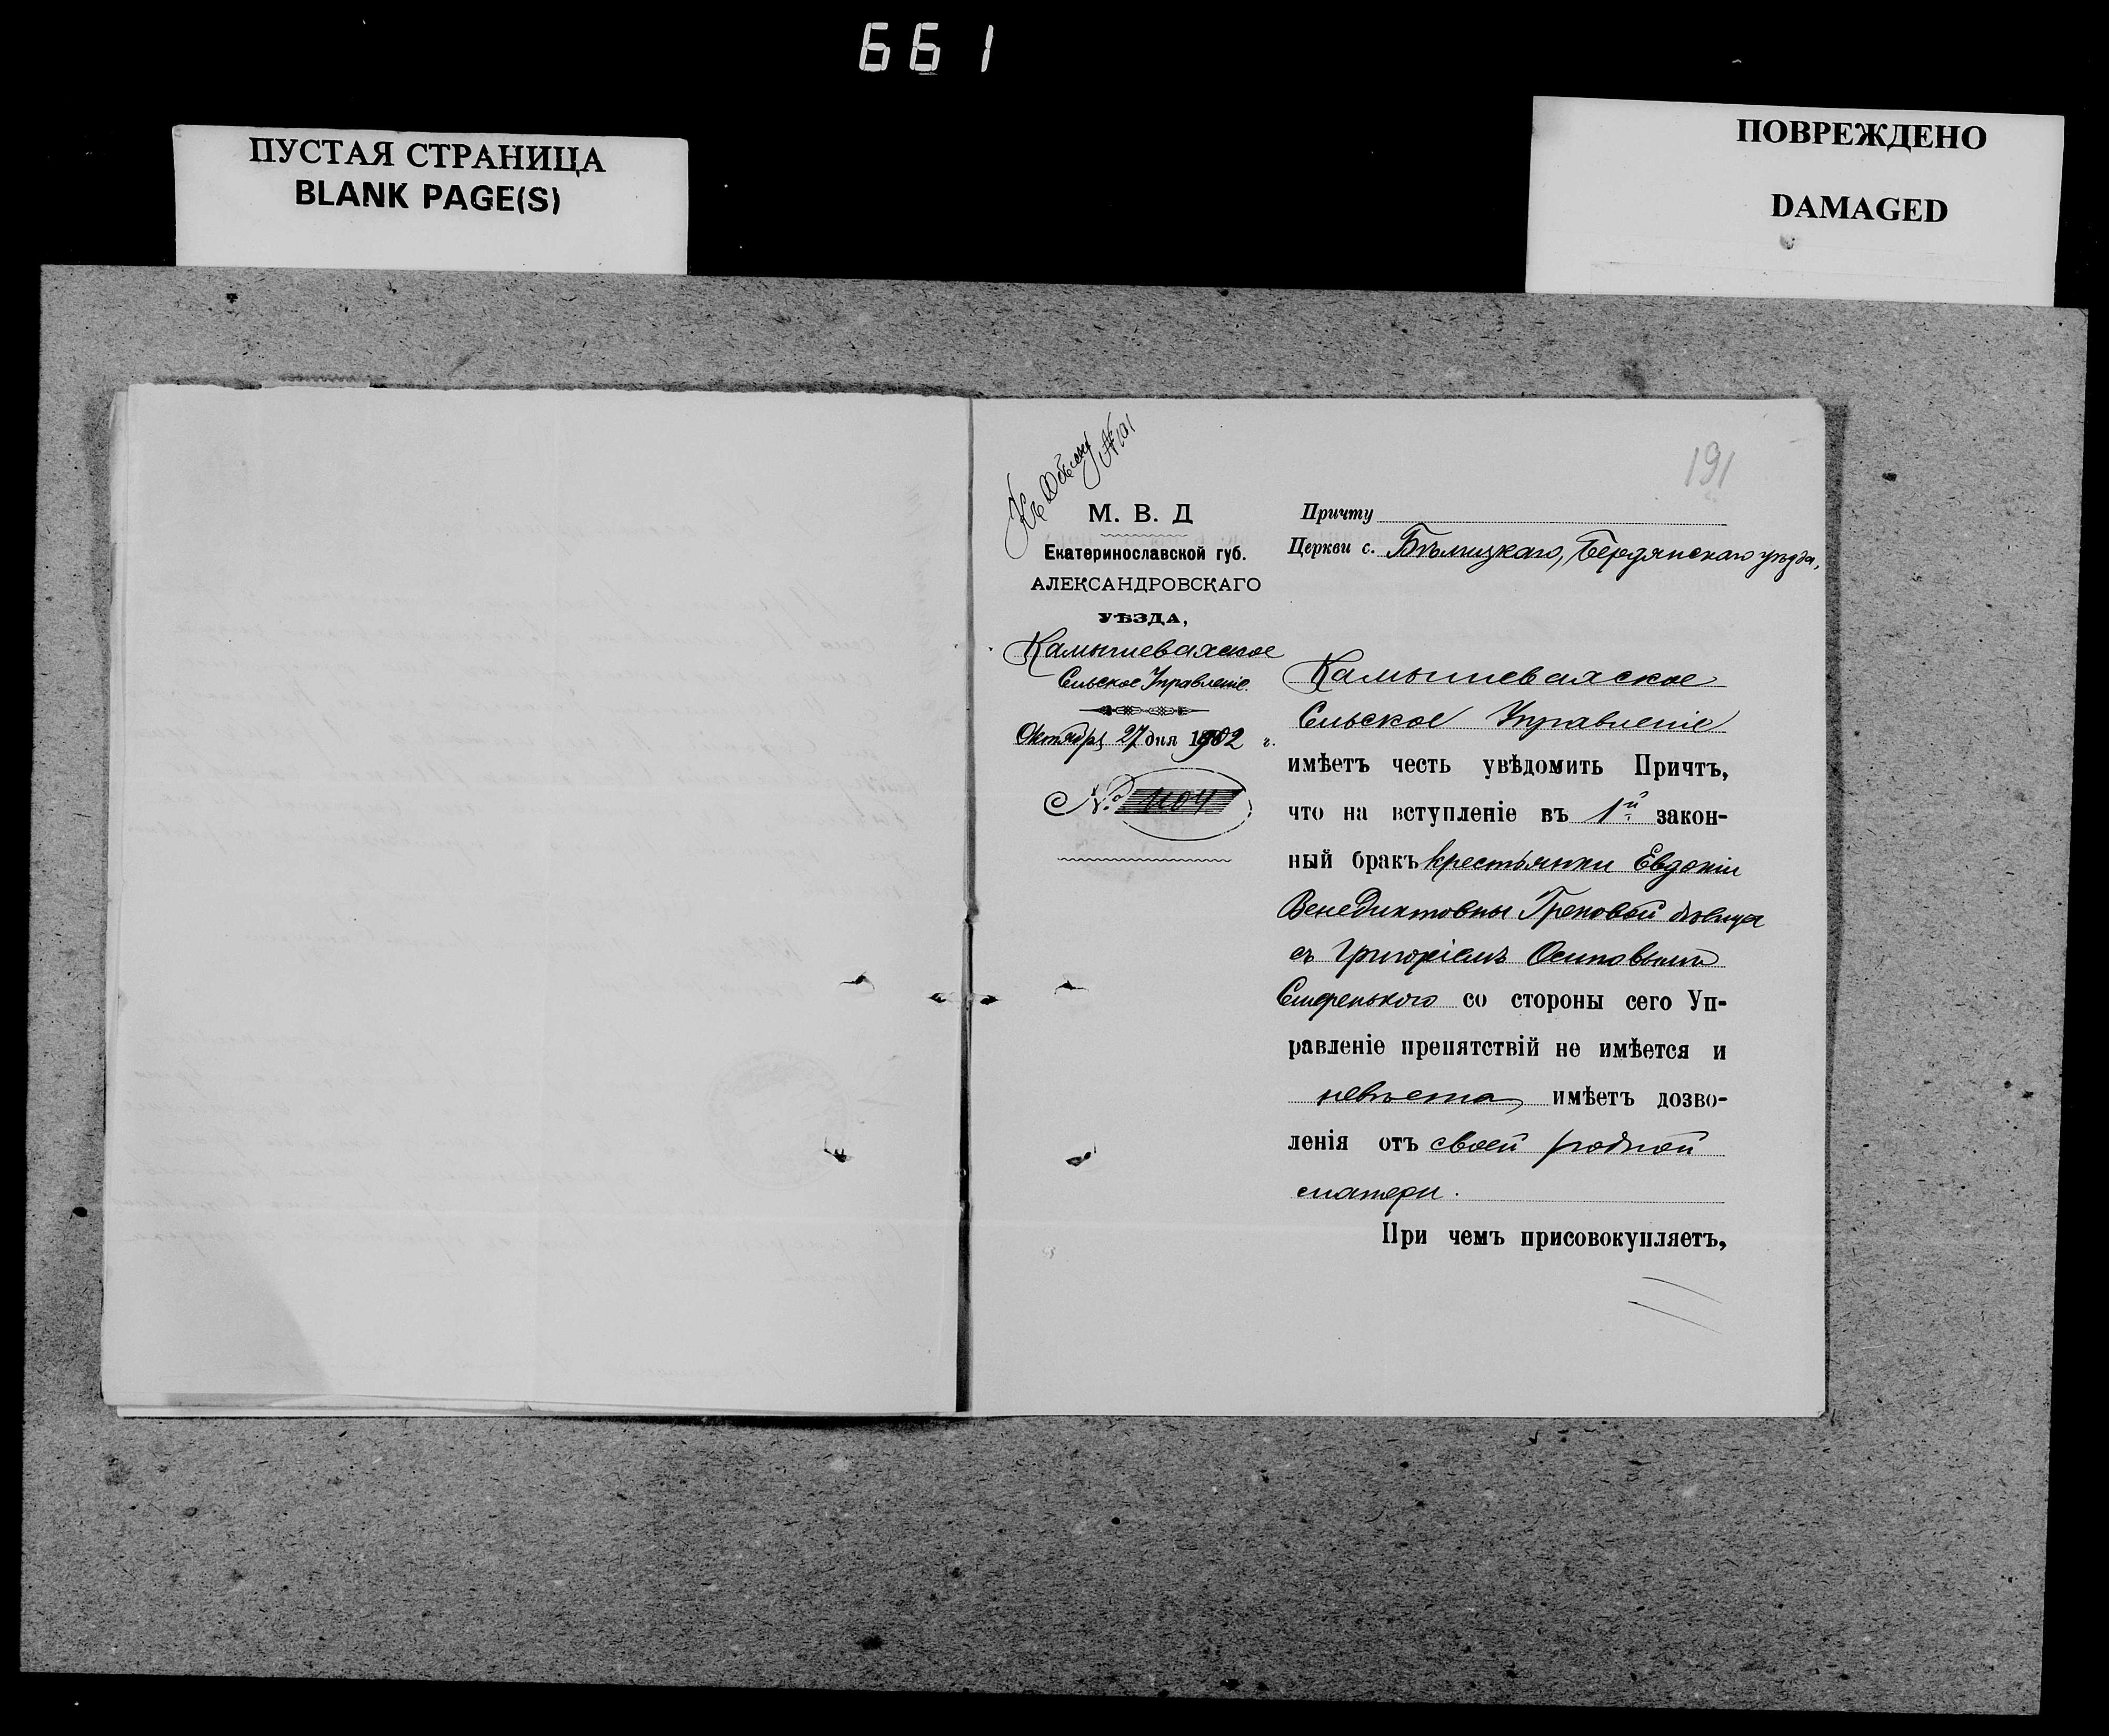 661
ПУСТАЯ СТРАНИЦА
BLANK PAGE(S)
ПОВРЕЖДЕНО
DAMAGED
191
Къ Обыску № 101
М. В. Д
Екатеринославской губ.
АЛЕКСАНДРОВСКАГО
УѢЗДА,
Камышевахское
Сельское Управленіе.
Октября 27 дня 1902 г.
№ 1104
Причту
Церкви с. Бѣлицкаго, Бердянскаго уѣзда,
Камышевахское
Сельское Управленіе
имѣетъ честь увѣдомить Причтъ,
что на вступленіе въ 1й закон-
ный бракъ крестьянки Евдокіи
Венедиктовны Грековой дѣвица
съ Григоріемъ Осиповымъ
со стороны сего Уп-
равленіе препятствій не имѣется и
невѣста имѣетъ дозво-
ленія отъ своей родной
матери.
При чемъ присовокупляетъ,